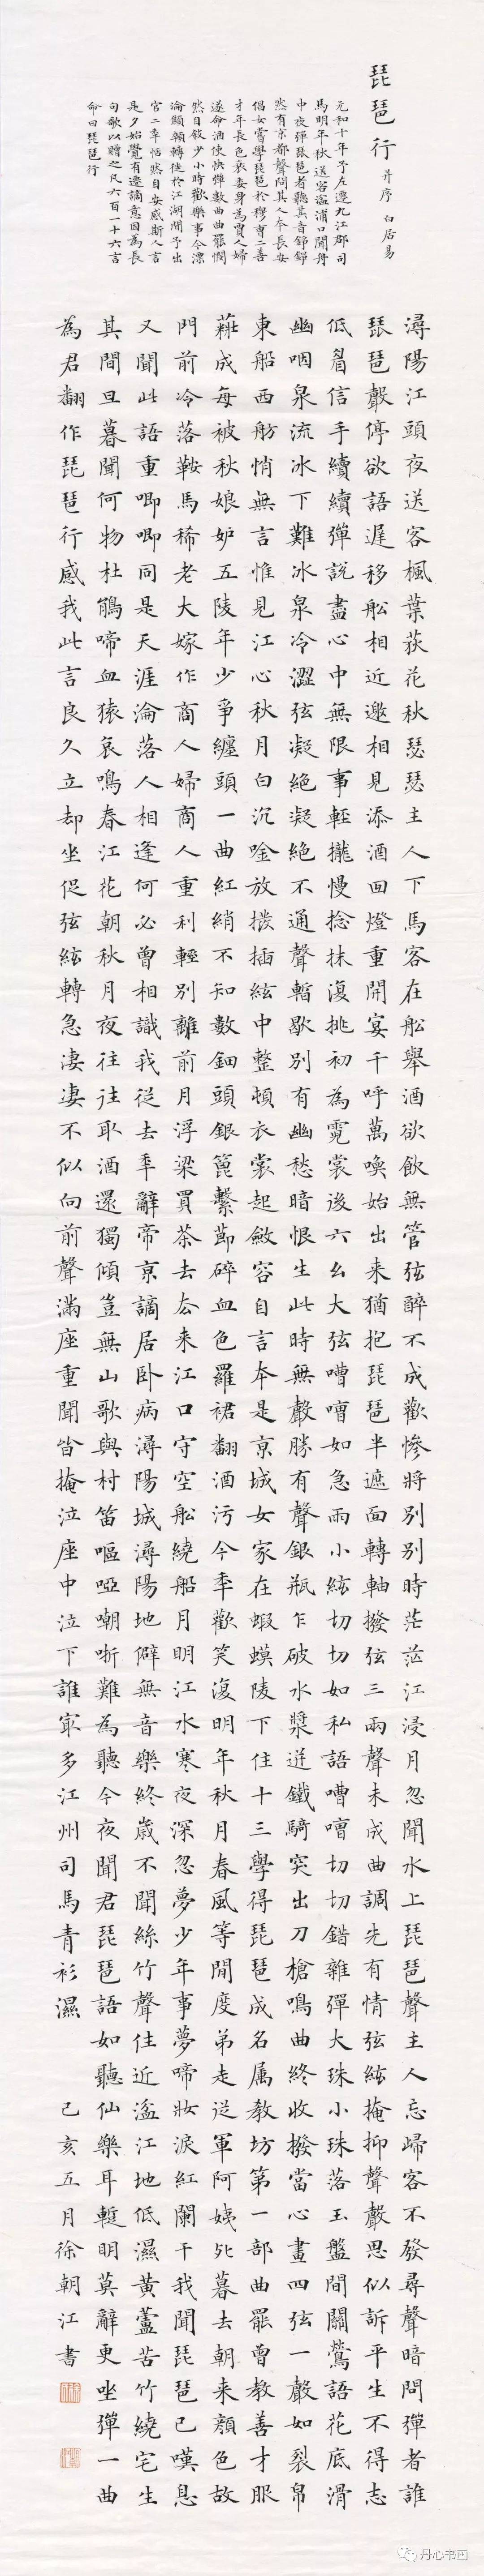 琵琶行 并序 白居易
元和十年予左遷九江郡司
馬明年秋送客湓浦口聞舟
中夜彈琵琶者聽其音錚錚
然有京都聲問其人本長安
倡女嘗學琵琶於穆曹二善
才年長色衰委身為賈人婦
遂命酒使快彈數曲曲罷憫
然自敘少小時歡樂事今漂
淪顦顇轉徙於江湖間予出
官二年恬然自安感斯人言
是夕始覺有遷謫意因為長
句歌以贈之凡六百一十六言
命曰琵琶行
潯陽江頭夜送客楓葉荻花秋瑟瑟主人下馬客在船舉酒欲飲無管弦醉不成歡慘將別別時茫茫江浸月忽聞水上琵琶聲主人忘歸客不發尋聲暗問彈者誰
琵琶聲停欲語遲移船相近邀相見添酒回燈重開宴千呼萬喚始出来猶抱琵琶半遮面轉軸撥弦三兩聲未成曲調先有情弦絃掩抑聲聲思似訴平生不得志
低眉信手續續彈說盡心中無限事輕攏慢捻抹復挑初為霓裳後六幺大弦嘈嘈如急雨小絃切切如私語嘈嘈切切錯雜彈大珠小珠落玉盤間關鶯語花底滑
幽咽泉流冰下難冰泉冷澀弦凝絕凝絕不通聲暫歇別有幽愁暗恨生此時無聲勝有聲銀瓶乍破水漿迸鐵騎突出刀槍鳴曲終收撥當心畫四弦一聲如裂帛
東船西舫悄無言惟見江心秋月白沉唫放撥插絃中整頓衣裳起斂容自言本是京城女家在蝦蟆陵下住十三學得琵琶成名属教坊第一部曲罷曾教善才服
糚成每被秋娘妒五陵年少爭纏頭一曲紅綃不知數鈿頭銀篦擊節碎血色羅裙翻酒污今年歡笑復明年秋月春風等閒度弟走從軍阿姨死暮去朝来顏色故
門前冷落鞍馬稀老大嫁作商人婦商人重利輕別離前月浮梁買茶去去来江口守空船繞船月明江水寒夜深忽夢少年事夢啼妝淚紅闌干我聞琵琶已嘆息
又聞此語重唧唧同是天涯淪落人相逢何必曾相識我從去年辭帝京謫居卧病潯陽城潯陽地僻無音樂終歲不聞絲竹聲住近湓江地低濕黃蘆苦竹繞宅生
其間旦暮聞何物杜鵑啼血猿哀鳴春江花朝秋月夜往往取酒還獨傾豈無山歌與村笛嘔啞嘲哳難為聽今夜聞君琵琶語如聽仙樂耳暫明莫辭更坐彈一曲
為君翻作琵琶行感我此言良久立却坐促弦絃轉急淒淒不似向前聲滿座重聞皆掩泣座中泣下誰最多江州司馬青衫濕 己亥五月徐朝江書
丹心书画